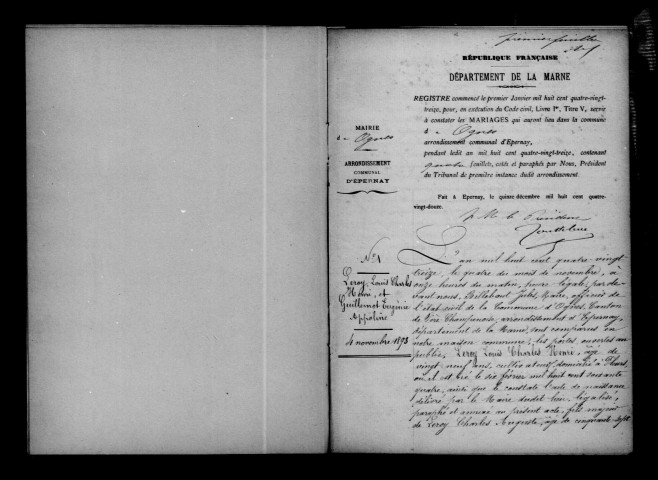 premier feuillet
RÉPUBLIQUE FRANÇAISE
DÉPARTEMENT DE LA MARNE
REGISTRE commencé le premier Janvier mil huit cent quatre-vingt-
treize, pour, en exécution du Code civil, Livre Ier, Titre V, servir
à constater les MARIAGES qui auront lieu dans la commune
d'Ognes
arrondissement communal d'Epernay,
pendant ledit an mil huit cent quatre-vingt-treize, contenant
feuillets, cotés et paraphés par Nous, Président
du Tribunal de première instance dudit arrondissement.
Fait à Epernay, le quinze décembre mil huit cent quatre-
vingt-douze.
P. M. le Président
MAIRIE
d'Ognes
ARRONDISSEMENT
COMMUNAL
D'EPERNAY
No 1
Leroy, Louis Charles
Henri, et
Guillemot Eugénie
Appoline
4 novembre 1893
L'an mil huit cent quatre-vingt-
treize, le quatre du mois de novembre, à
onze heures du matin, heure légale, par de-
vant nous, Billebaut Jules, Maire, officier de
l'état civil de la Commune d'Ognes, Canton
de Fère Champenoise, arrondissement d'Epernay,
département de la Marne, sont comparus en
notre maison commune, les portes ouvertes au
public, Leroy Louis Charles Henri, âgé de
vingt neuf ans, cultivateur, domicilié à Pleurs,
où il est né le six février mil huit cent soixante
quatre, ainsi que le constate l'acte de naissance
délivré par le Maire dudit lieu, légalisé,
paraphé et annexé au présent acte, fils majeur
de Leroy Charles Auguste, âgé de cinquante-sept